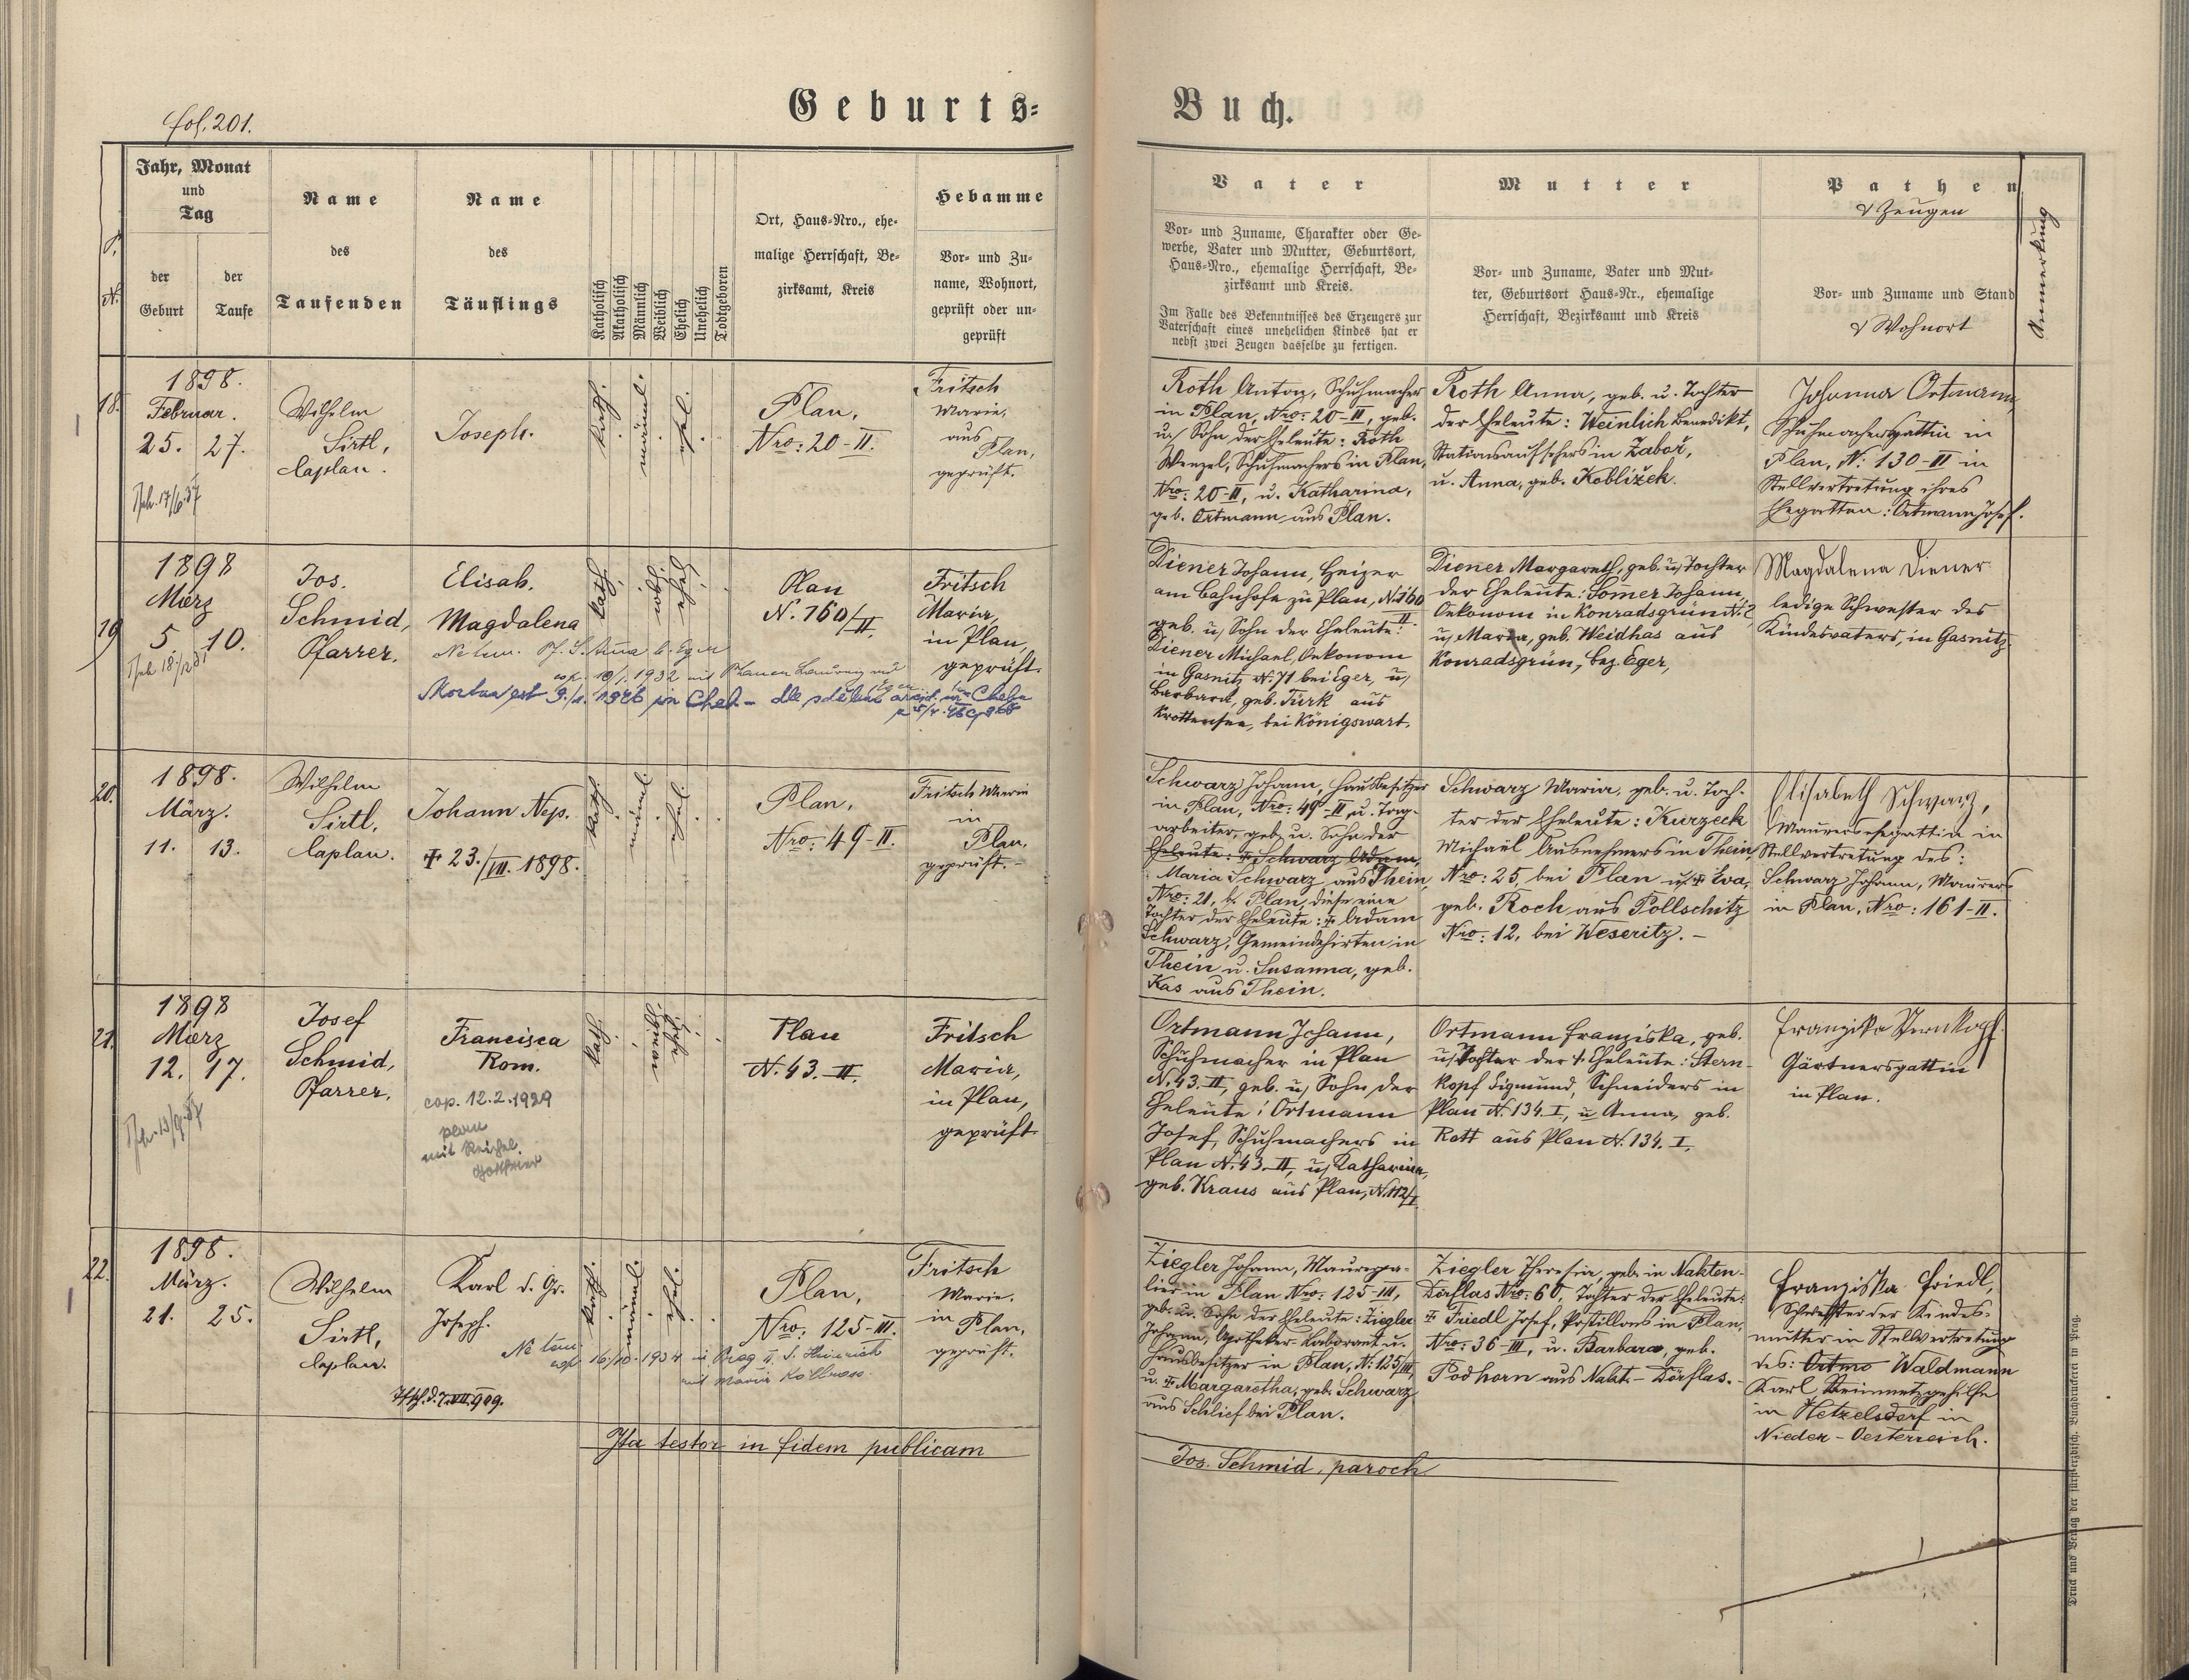 fol. 201.
Geburts=
Buch.
P.
N.
Jahr, Monat
und
Tag
der
Geburt
der
Taufe
Name
des
Taufenden
Name
des
Täuflings
Katholisch
Akatholisch
Männlich
Weiblich
Ehelich
Unehelich
Todtgeboren
Ort, Haus=Nro., ehe=
malige Herrschaft, Be=
zirksamt, Kreis
Hebamme
Vor= und Zu=
name, Wohnort,
geprüft oder un=
geprüft
Vater
Vor= und Zuname, Charakter oder Ge=
werbe, Vater und Mutter, Geburtsort,
Haus=Nro., ehemalige Herrschaft, Be=
zirksamt und Kreis.
Im Falle des Bekenntnisses des Erzeugers zur
Vaterschaft eines unehelichen Kindes hat er
nebst zwei Zeugen dasselbe zu fertigen.
Mutter
Vor= und Zuname, Vater und Mut=
ter, Geburtsort Haus=Nr., ehemalige
Herrschaft, Bezirksamt und Kreis
Pathen
& Zeugen
Vor= und Zuname und Stand
& Wohnort
Anmerkung
18.
1898.
Februar.
25. 27.
Wilhelm
Sirtl,
Caplan.
Joseph.
kath.
männl.
ehel.
Plan,
Nro: 20-II.
Fritsch
Marie,
aus
Plan,
geprüft.
Roth Anton, Schuhmacher
in Plan, Nro: 20-II, geb.
u. Sohn der Eheleute: Roth
Wenzel, Schuhmachers in Plan,
Nro: 20-II, u. Katharina,
geb. Ortmann aus Plan.
Roth Anna, geb. u. Tochter
der Eheleute: Weinlich Benedikt,
Stationsaufsehers in Zaboř,
u. Anna, geb. Kobližek.
Johanna Ortmann,
Schuhmachersgattin in
Plan, N: 130-II in
Stellvertretung ihres
Ehegatten: Ortmann Josef.
19
1898
März
5 10.
Jos.
Schmid,
Pfarrer.
Elisab.
Magdalena
cop. 10/1. 1932 mit
Mortua est 9./1. 1946 in Cheb
kath.
weibl.
ehel.
Plan
N. 160/II.
Fritsch
Maria,
in Plan,
geprüft.
Diener Johann, Heizer
am Bahnhofe zu Plan, N. 160
II.
geb. u. Sohn der Eheleute:
Diener Michael, Oekonom
in Gasnitz N. 71 bei Eger, u.
Barbara, geb. Türk aus
Krottensee, bei Königswart.
Diener Margareth, geb. u. Tochter
der Eheleute: Somer Johann,
Oekonom in Konradsgrün N. 2
u. Maria, geb. Weidhas aus
Konradsgrün, Bez. Eger,
Magdalena Diener
ledige Schwester des
Kindesvaters, in Gasnitz.
20.
1898.
März.
11. 13.
Wilhelm
Sirtl,
Caplan.
Johann Nep.
✝ 23./VII. 1898.
kath.
männl.
ehel.
Plan,
Nro: 49-II.
Fritsch Marie
in
Plan,
geprüft.-
Schwarz Johann, Hausbesitzer
in Plan, Nro: 49-II, u. Tag-
arbeiter, geb. u. Sohn der
Eheleute: ✝ Schwarz Adam,
Maria Schwarz aus Thein,
Nro: 21, b. Plan, diese eine
Tochter der Eheleute: ✝ Adam
Schwarz, Gemeindehirten in
Thein u. Susanna, geb.
Kas aus Thein.
Schwarz Maria, geb. u. Toch-
ter der Eheleute: Kurzeck
Michael Ausnehmers in Thein,
Nro: 25, bei Plan u. ✝ Eva,
geb. Koch aus Pollschitz
Nro: 12, bei Weseritz. -
Elisabeth Schwarz,
Maurersehegattin in
Stellvertretung des:
Schwarz Johann, Maurers
in Plan, Nro: 161-II.
21.
1898
März
12. 17.
Josef
Schmid,
Pfarrer,
Francisca
Rom.
cop. 12.2.1929
plan
mit Reichel
kath.
ehel.
Plan
N. 43. II.
Fritsch
Maria,
in Plan,
geprüft.
Ortmann Johann,
Schuhmacher in Plan
N. 43. II, geb. u. Sohn der
Eheleute: Ortmann
Josef, Schuhmachers in
Plan N. 43. II, u. Katharina,
geb. Kraus aus Plan, N. 112/I.
Ortmann Franziska, geb.
u. Tochter der ✝ Eheleute: Stern-
kopf Sigmund, Schneiders in
Plan N. 134. I, u. Anna, geb.
Rott aus Plan N. 134. I.
Franziska Sternkopf
Gärtnersgattin
in Plan.
22.
1898.
März.
21. 25.
Wilhelm
Sirtl,
Caplan.
Karl d. Gr.
Joseph.
cop. 16/10. 1934 in Prag II. S. Heinrich
mit Maria
kath.
männl.
ehel.
Plan,
Nro: 125-III.
Fritsch
Marie.
in
Plan,
geprüft.
Ziegler Johann, Maurerpa-
lier in Plan Nro: 125-III,
geb. u. Sohn der Eheleute: Ziegler
Johann, Apotheker-Laborant u.
Hausbesitzer in Plan, N: 125/III,
u. ✝ Margaretha, geb. Schwarz
aus Schlief bei Plan.
Ziegler Theresia, geb. in Nakten-
Dörflas Nro: 60, Tochter der Eheleute:
✝ Friedl Josef, Postillons in Plan,
Nro: 36-III, u. Barbara, geb.
Podhorn aus Nakt.-Dörflas.-
Franziska Friedl,
Schwester der Kindes-
mutter in Stellvertretung
des: Ortma Waldmann
Karl, Steinmetzgehilfe
in Hetzelsdorf in
Nieder-Oesterreich.
Ita testor in fidem publicam
Jos. Schmid, paroch
Druck und Verlag der fürsterzbisch. Buchdruckerei in Prag.